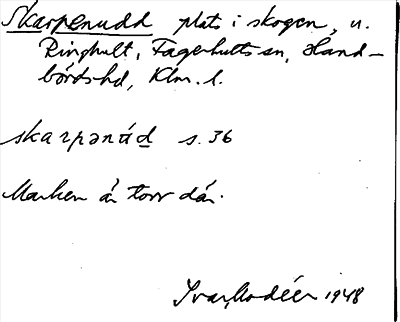 Skarpenudd plats i skogen, u.
Ringhult, Fagerhults sn, Hand-
bördshd, Klm. l.
skarpənúd s. 36
Marken är torr där.
Ivar Modéer 1948